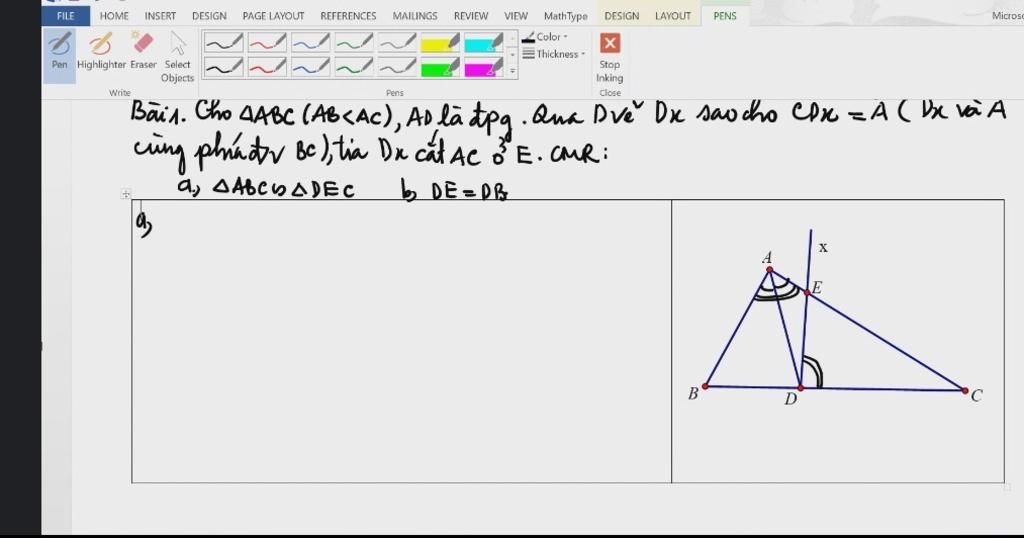 FILE HOME INSERT DESIGN PAGE LAYOUT REFERENCES MAILINGS REVIEW VIEW MathType DESIGN LAYOUT PENS
Pen Highlighter Eraser Select Objects
Color
Thickness
Stop Inking
Write Pens Close
Bài 1. Cho ΔABC (AB<AC), AD là đpg. Qua D vẽ Dx sao cho CDx = A ( Dx và A
cùng phía đv BC), tia Dx cắt AC ở E. CMR:
a, ΔABC ∽ ΔDEC b, DE = DB
a,
x
A
E
B
D
C